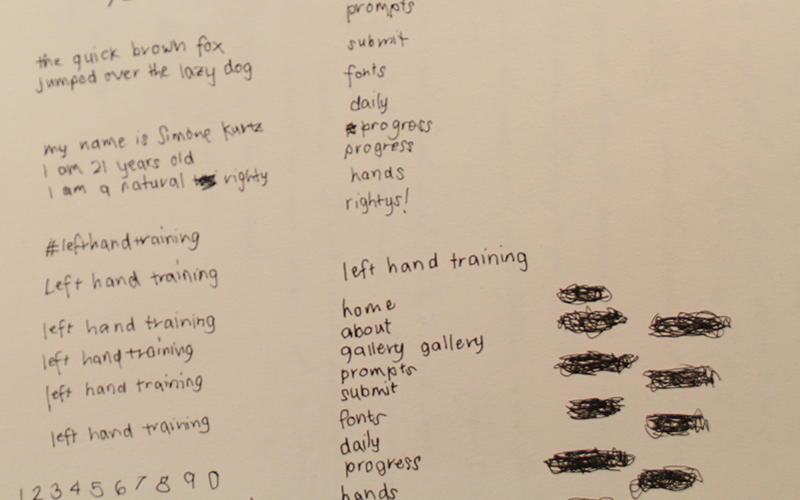 the quick brown fox
jumped over the lazy dog
my name is Simone Kurtz
I am 21 years old
I am a natural righty
#lefthandtraining
Left hand training
left hand training
left hand training
left hand training
left hand training
1 2 3 4 5 6 7 8 9 0
prompts
submit
fonts
daily
progress
progress
hands
rightys!
left hand training
home
about
gallery gallery
prompts
submit
fonts
daily
progress
hands